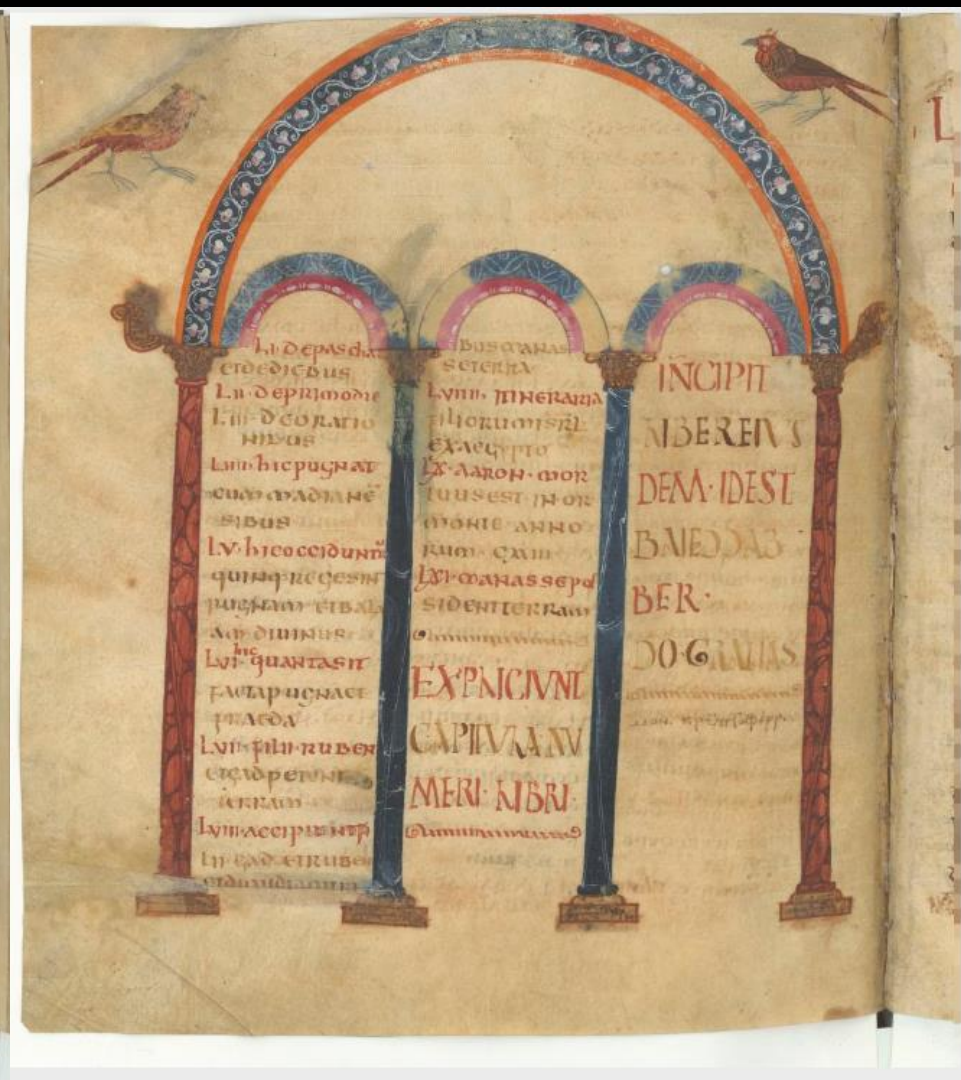 LI· De pascha
et dediebus
LII· De primo die
LIII· De oratio
nibus
LIIII· hic pugnat
cum madiane
sibus
LV· hic occidunt
quinq· reges in
pugnam et bala
am divinus
LVI· hic quanta sit
facta pugna et
praeda
LVII· filii ruben
et gad petunt
terram
LVIII· accipiunt
gad et ruben
bus manas
se terra
LVIIII· itineraria
filiorum isrl
ex aegypto
LX· aaron· mor
tuus est in or
monte anno
rum· CXXIII·
LXI· manasse po
sident terram
EXPLICIUNT
CAPITULA NU
MERI· LIBRI·
INCIPIT
LIBER EIUS
DEM· IDEST
BAIEDDAB
BER·
DO· GRATIAS